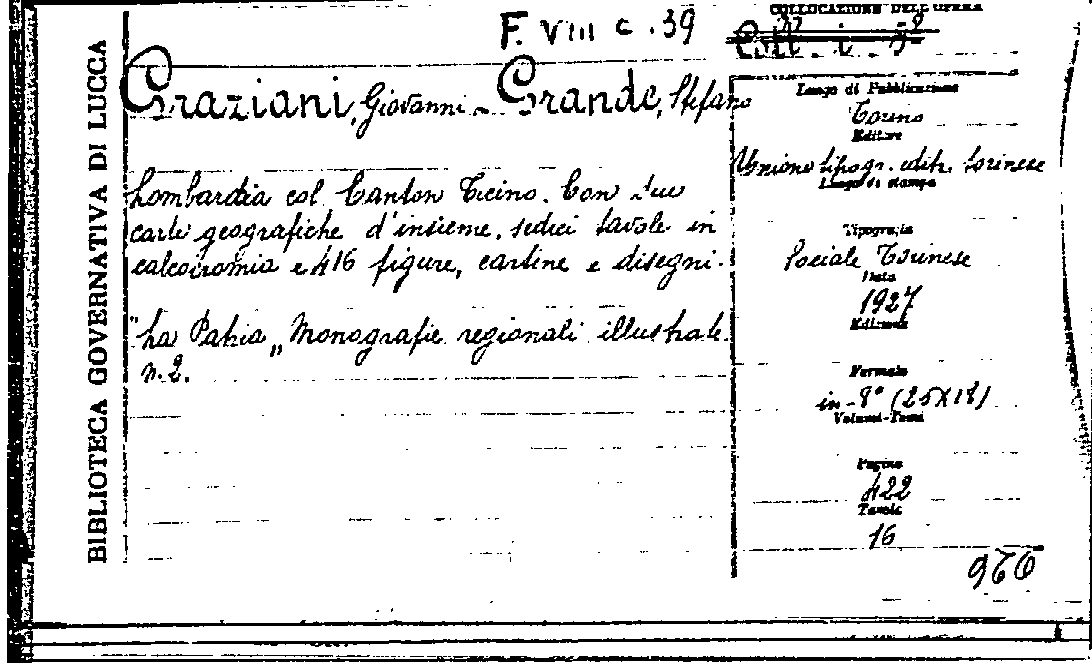 BIBLIOTECA GOVERNATIVA DI LUCCA
F. VIII c. 39
Graziani, Giovanni - Grande, Stefano
Lombardia col Canton Ticino. Con due
carte geografiche d'insieme, sedici tavole in
calcocromia e 416 figure, cartine e disegni.
"La Patria„ Monografie regionali illustrate.
n. 2.
COLLOCAZIONE DELL'OPERA
Luogo di Pubblicazione
Torino
Editore
Unione tipogr. edit. torinese
Luogo di stampa
Tipografia
Sociale Torinese
Data
1927
Edizione
Formato
in-8° (25X18)
Volumi-Tomi
Pagine
422
Tavole
16